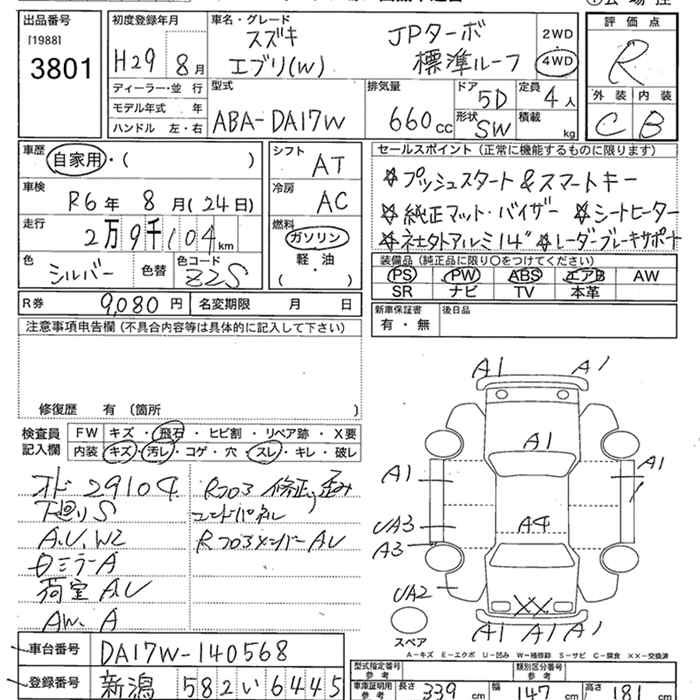 出品番号
[1988]
3801
初度登録年月
H29 8月
車名・グレード
スズキ JPターボ
エブリ(W) 標準ルーフ
2WD
4WD
評価点
R
外装 内装
C B
ディーラー・並行
モデル年式 年
ハンドル 左・右
型式
ABA-DA17W
排気量
660cc
ドア
5D
定員
4人
形状
SW
積載
kg
車歴
自家用・( )
車検
R6年 8月(24日)
走行
2万9千104km
色
シルバー
色替
色コード
Z2S
シフト
AT
冷房
AC
燃料
ガソリン
軽・油
( )
R券 9,080円
名変期限 月 日
セールスポイント(正常に機能するものに限ります)
☆プッシュスタート&スマートキー
☆純正マット・バイザー ☆シートヒーター
☆社外アルミ14" ☆レーダーブレーキサポート
装備品(純正品に限り○をつけてください)
PS PW ABS エアB AW
SR ナビ TV 本革
新車保証書
有・無
後日品
注意事項申告欄(不具合内容等は具体的に記入して下さい)
修復歴 有 (箇所 )
検査員
記入欄
FW キズ・飛石・ヒビ割・リペア跡・X要
内装 キズ・汚レ・コゲ・穴・スレ・キレ・破レ
オド 29104
下廻りS
A.U.W2
DミラーA
荷室 A.U
AW.A
Rフロア修正、歪み
エンドパネル
RフロアメンバーAU
A1 A1
A1
A1
A1
UA3
A3
A4
UA2
XX
A1 A1 A1
スペア
A-キズ E-エクボ U-凹み W-補修跡 S-サビ C-腐食 XX-交換済
車台番号 DA17W-140568
登録番号 新潟 582 い 6445
型式指定番号
参考
類別区分番号
参考
車庫証明用
参考
長さ 339cm 幅 147cm 高さ 181cm